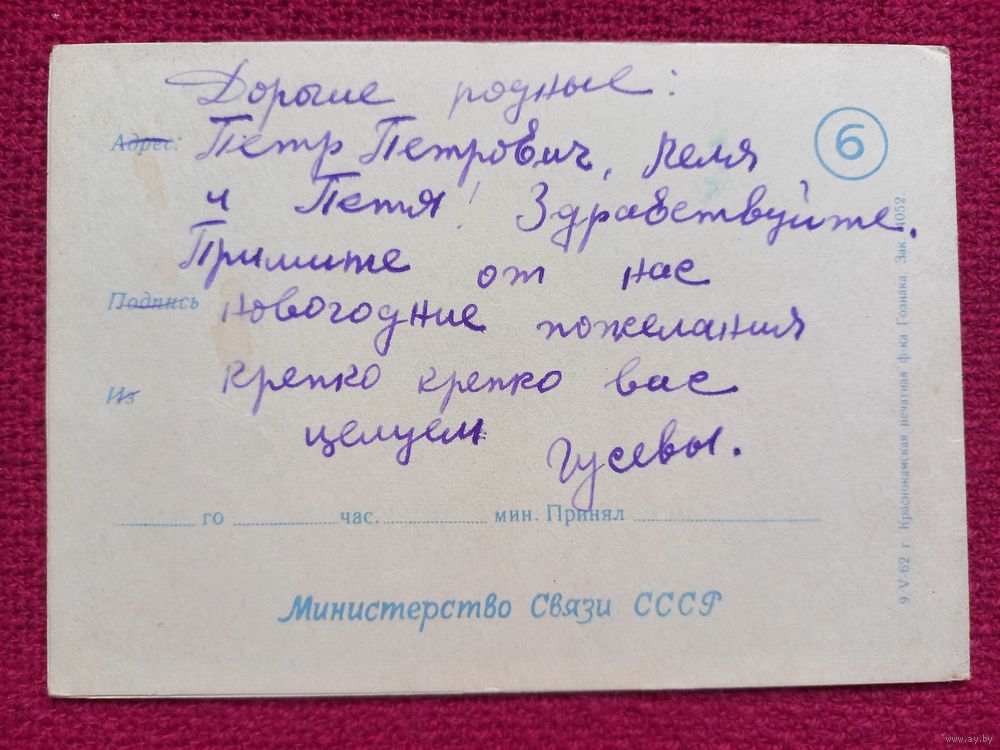 Дорыие родные:
Адрес: Петр Петрович, Меля
и Петя! Здравствуйте.
Примите от нас
Подпись новогодние пожелания
Из крепко крепко вас
целуем Гусевы.
го час. мин. Принял
Министерство Связи СССР
6
9 V 62 г Краснокамская печатная ф-ка Гознака Зак. 4052.
www.ay.by